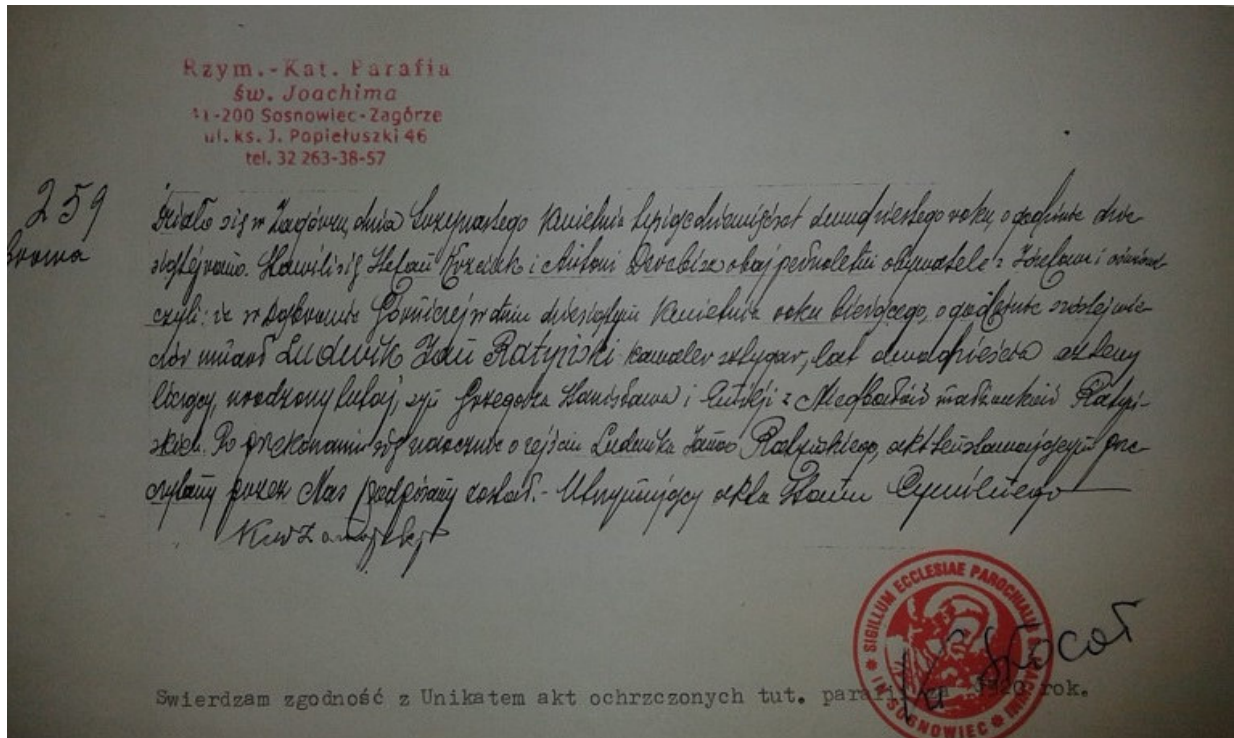 Rzym.-Kat. Parafia
św. Joachima
41-200 Sosnowiec-Zagórze
ul. ks. J. Popiełuszki 46
tel. 32 263-38-57
259
Działo się w Zagórzu, dnia Kwietnia tysiąc dziewięćset dwudziestego roku, o godzinie dzie-
siątej rano. Stawili się Stefan i Antoni obaj pełnoletni obywatele z Józefowa i oświad-
czyli: że w Dąbrowie Górniczej w dniu dziesiątym Kwietnia roku bieżącego, o godzinie szóstej wie-
czór umarł Ludwik Jan Ratyński kawaler sztygar, lat dwadzieścia cztery
liczący, urodzony tutaj, syn Grzegorza Stanisława i Emilji z małżonków Ratyń-
skich. Po przekonaniu się naocznie o zejściu Ludwika Jana Ratyńskiego, akt ten stawającym prze-
czytany przez Nas podpisany został.- Utrzymujący akta Stanu Cywilnego
SIGILLUM ECCLESIAE PAROCHIALIS
IN SOSNOWIEC
Swierdzam zgodność z Unikatem akt ochrzczonych tut. parafii 1920 rok.